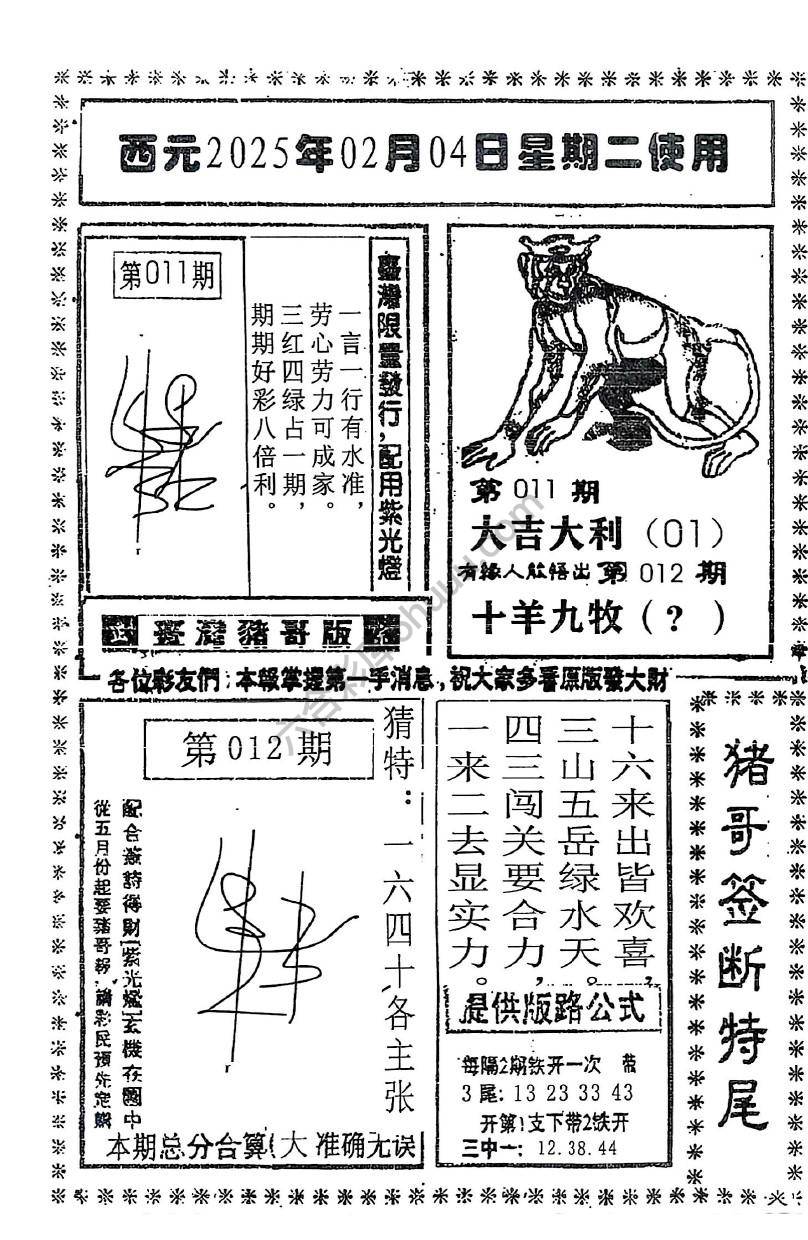 西元2025年02月04日星期二使用
第011期
一言一行有水准，
劳心劳力可成家。
三红四绿占一期，
期期好彩八倍利。
臺灣限量發行，配用紫光燈
臺灣豬哥版
第 011 期
大吉大利（01）
有緣人能悟出 第 012 期
十羊九牧（？）
各位彩友們：本報掌握第一手消息，祝大家多看原版發大財
第012期
猜特：一六四十各主张
配合簽詩得財紫光燈玄機在圖中
從五月份起要豬哥報，請彩民預先定購
本期总分合算(大 准确无误
十六来出皆欢喜，
三山五岳绿水天。
四三闯关要合力，
一来二去显实力。
提供版路公式
每隔2期铁开一次 带
3尾: 13 23 33 43
开第1支下带2铁开
三中一: 12.38.44
猪哥签断特尾
六合彩库ohuuu.com